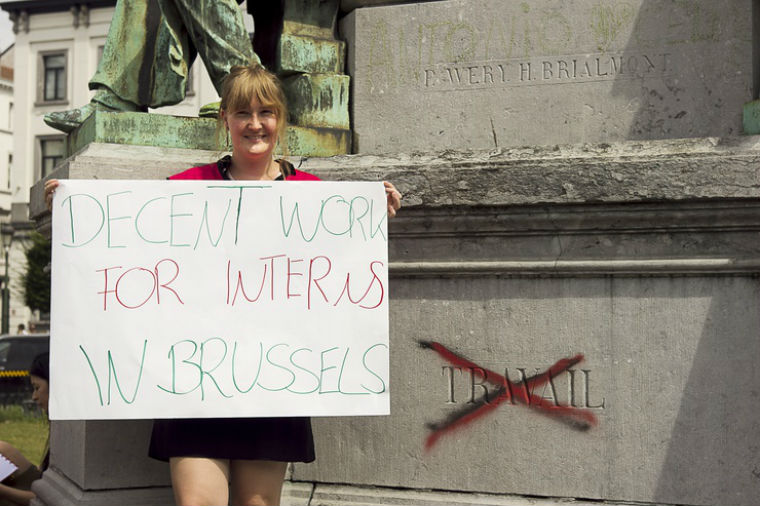 ANTONIO
P. WERY H. BRIALMONT
DECENT WORK
FOR INTERNS
IN BRUSSELS
TRAVAIL